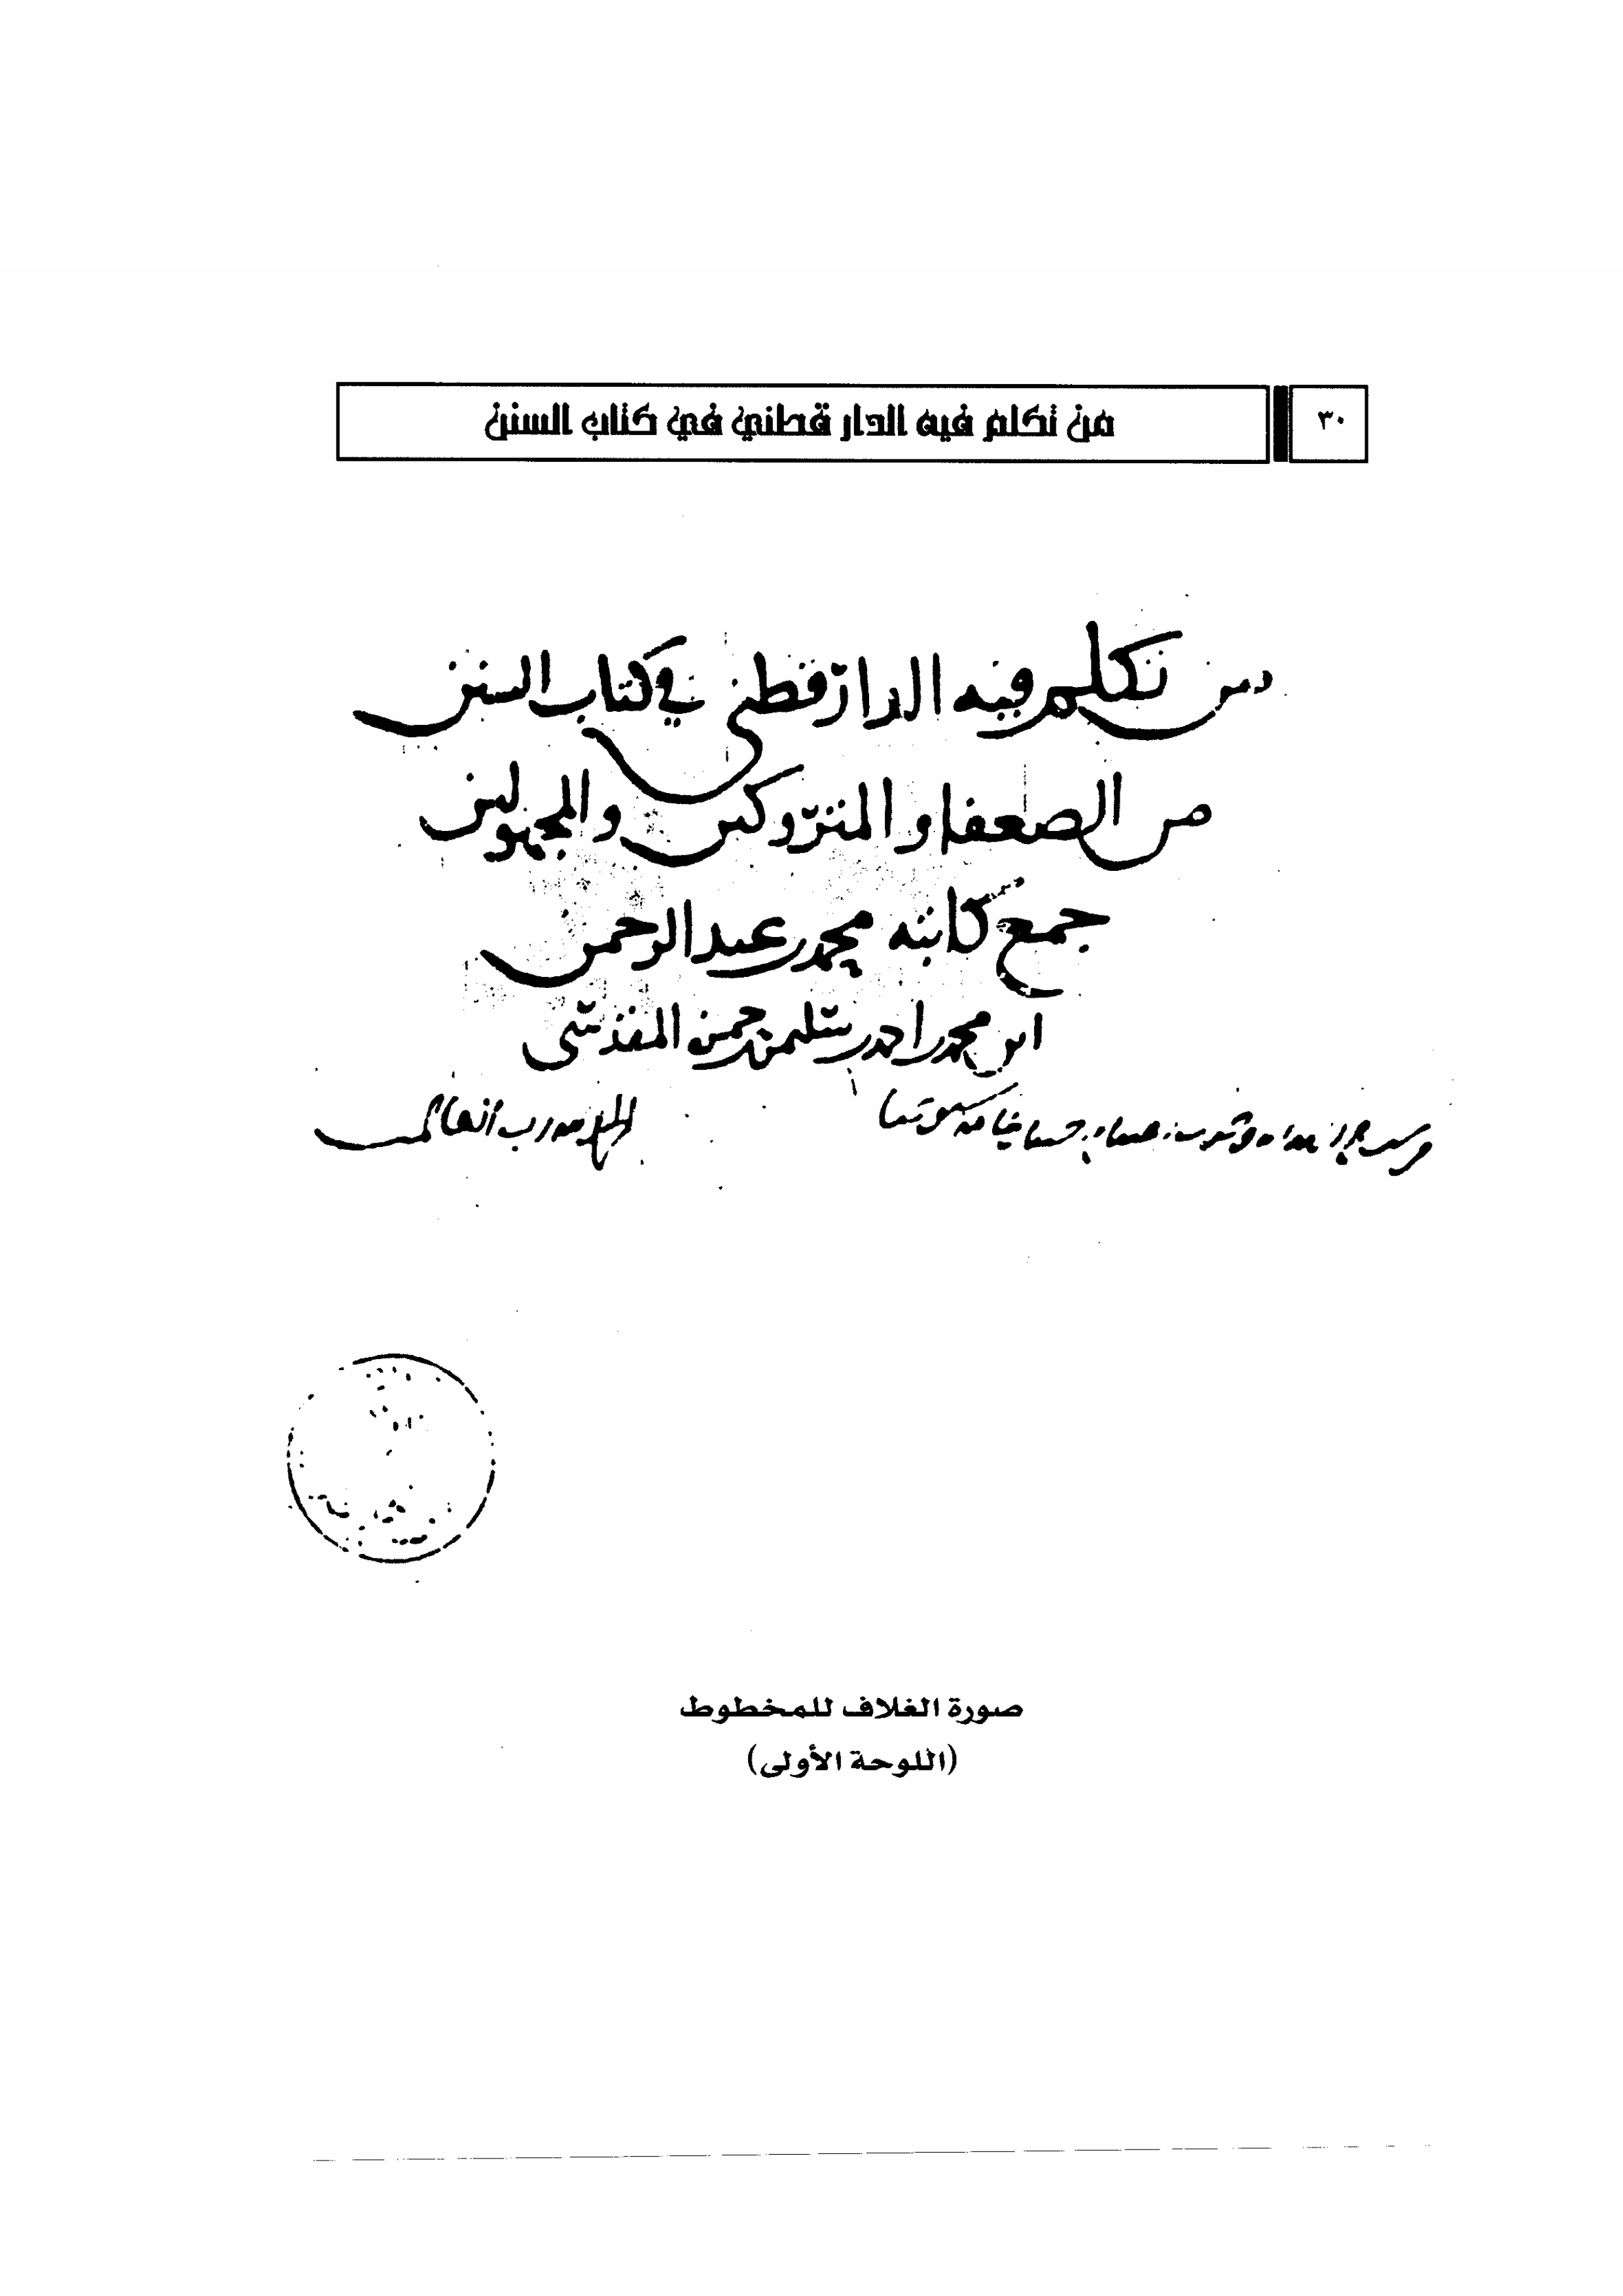 ٣٠ من تكلم فيه الدارقطني في كتاب السنن
من تكلم فيه الدارقطني في كتاب السنن
من الضعفا والمتروكين والمجهولين
جمع كاتبه محمد بن عبد الرحمن
ابن محمد بن احمد بن سليمن بن حمزة المقدسي
الحمد لله رب العالمين
صورة الغلاف للمخطوط
(اللوحة الأولى)